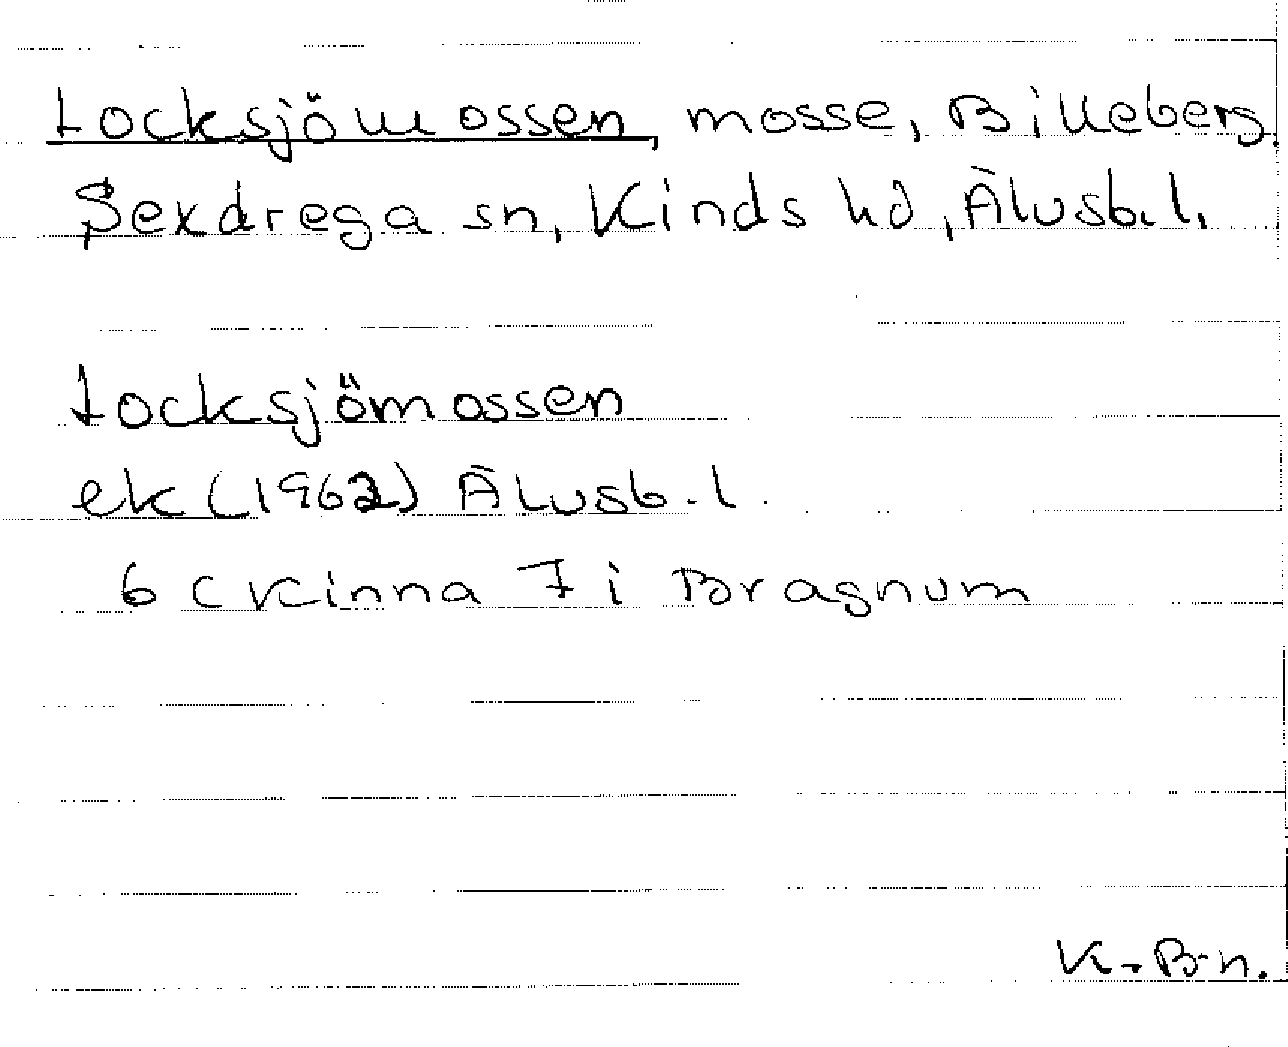 Locksjömossen, mosse, Billeberg,
Sexdrega sn, Kinds hd, Älvsb.l.
Locksjömossen
ek (1962) Älvsb.l.
6 C Kinna 7 i Bragnum
K.B-n.